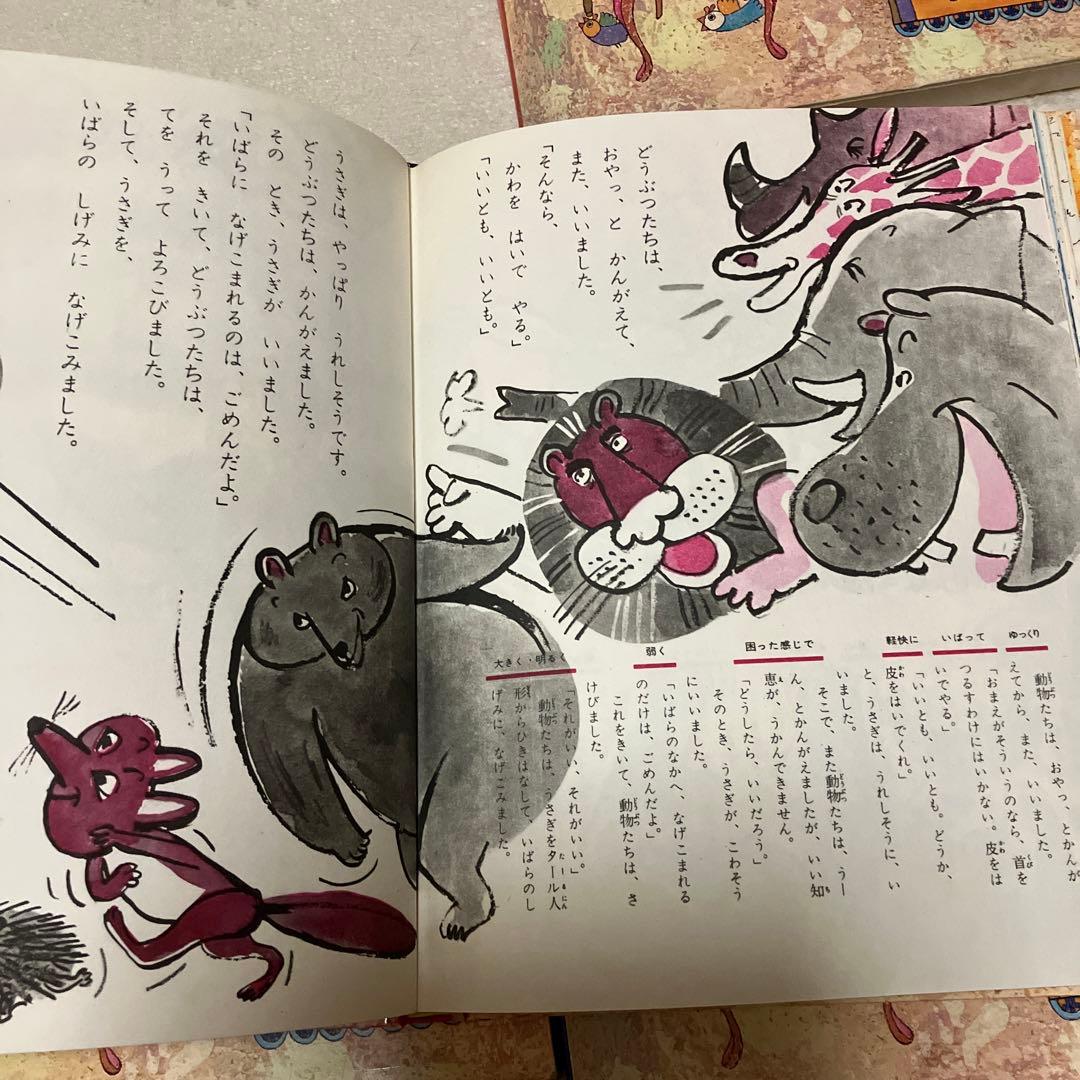 どうぶつたちは、
おやっ、と かんがえて、
また、いいました。
「そんなら、
かわを はいで やる。」
「いいとも、いいとも。」
ゆっくり
いばって
軽快に
困った感じで
弱く
大きく・明るく
動物たちは、おやっ、とかんが
えてから、また、いいました。
「おまえがそういうのなら、首を
つるすわけにはいかない。皮をは
いでやる。」
「いいとも、いいとも。どうか、
皮をはいでくれ。」
と、うさぎは、うれしそうに、い
いました。
そこで、また動物たちは、うー
ん、とかんがえましたが、いい知
恵が、うかんできません。
「どうしたら、いいだろう。」
そのとき、うさぎが、こわそう
にいいました。
「いばらのなかへ、なげこまれる
のだけは、ごめんだよ。」
これをきいて、動物たちは、さ
けびました。
「それがいい、それがいい。」
動物たちは、うさぎをタール人
形からひきはなして、いばらのし
げみに、なげこみました。
うさぎは、やっぱり うれしそうです。
どうぶつたちは、かんがえました。
その とき、うさぎが いいました。
「いばらに なげこまれるのは、ごめんだよ。」
それを きいて、どうぶつたちは、
てを うって よろこびました。
そして、うさぎを、
いばらの しげみに なげこみました。